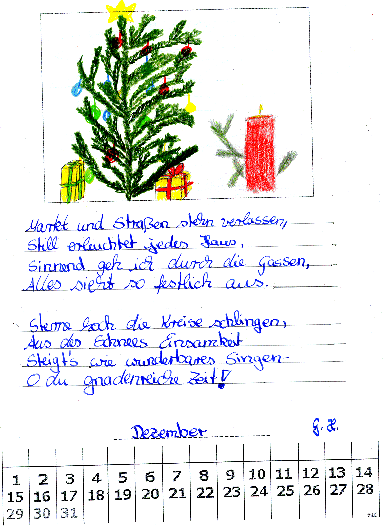 Markt und Straßen stehn verlassen,
Still erleuchtet jedes Haus,
Sinnend geh ich durch die Gassen,
Alles sieht so festlich aus.
Sterne hoch die Kreise schlingen,
Aus des Schnees Einsamkeit
Steigt's wie wunderbares Singen-
O du gnadenreiche Zeit!
Dezember
1 2 3 4 5 6 7 8 9 10 11 12 13 14
15 16 17 18 19 20 21 22 23 24 25 26 27 28
29 30 31